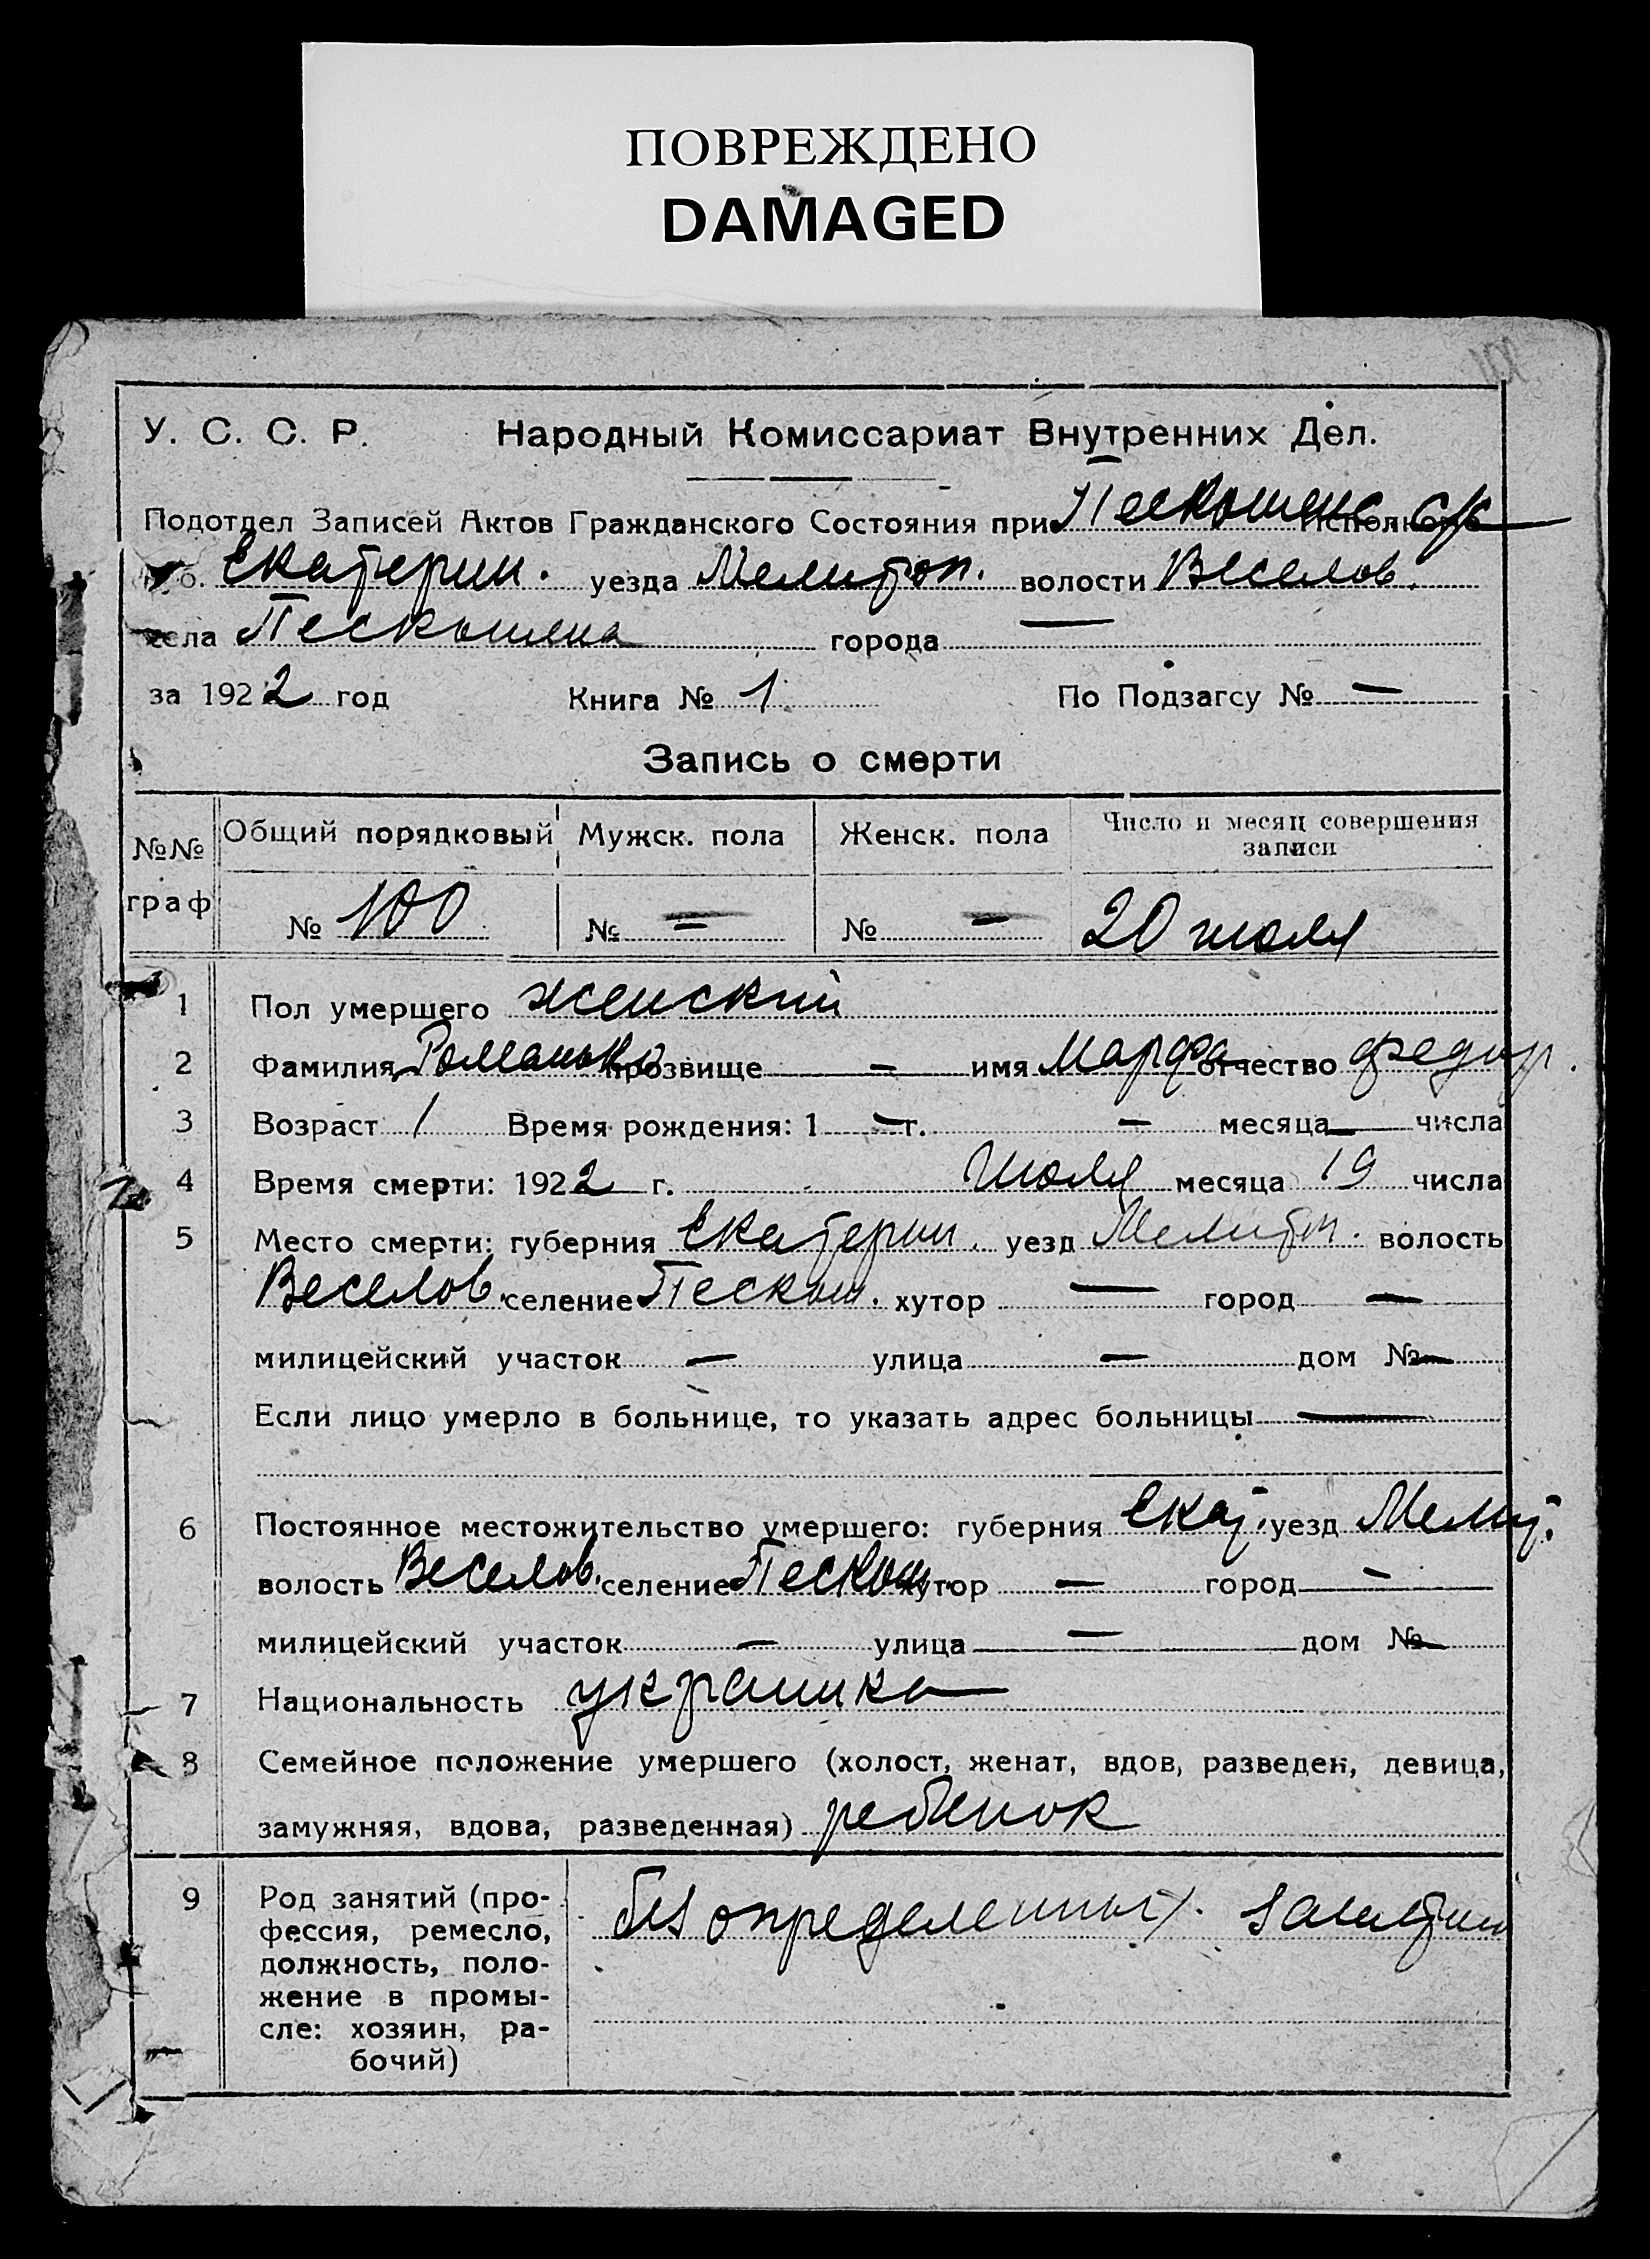 ПОВРЕЖДЕНО
DAMAGED
У. С. С. Р. Народный Комиссариат Внутренних Дел.
Подотдел Записей Актов Гражданского Состояния при Пескошенс. с/с исполкоме
губ. Екатерин. уезда Мелитоп. волости Веселов.
села Пескошена города —
за 1922 год Книга № 1 По Подзагсу № —
Запись о смерти
№№ граф Общий порядковый Мужск. пола Женск. пола Число и месяц совершения записи
№ 100 № — № — 20 июля
1 Пол умершего женский
2 Фамилия Романько прозвище — имя Марфа отчество Федор.
3 Возраст 1 Время рождения: 1 — г. — месяца — числа
4 Время смерти: 1922 г. Июля месяца 19 числа
5 Место смерти: губерния Екатерин. уезд Мелитоп. волость
Веселов. селение Пескош. хутор — город —
милицейский участок — улица — дом № —
Если лицо умерло в больнице, то указать адрес больницы —
6 Постоянное местожительство умершего: губерния Екат. уезд Мелит.
волость Веселов. селение Пескош. хутор — город —
милицейский участок — улица — дом № —
7 Национальность украинка
8 Семейное положение умершего (холост, женат, вдов, разведен, девица,
замужняя, вдова, разведенная) ребенок
9 Род занятий (про-
фессия, ремесло,
должность, поло-
жение в промы-
сле: хозяин, ра-
бочий)
без определенных занятий